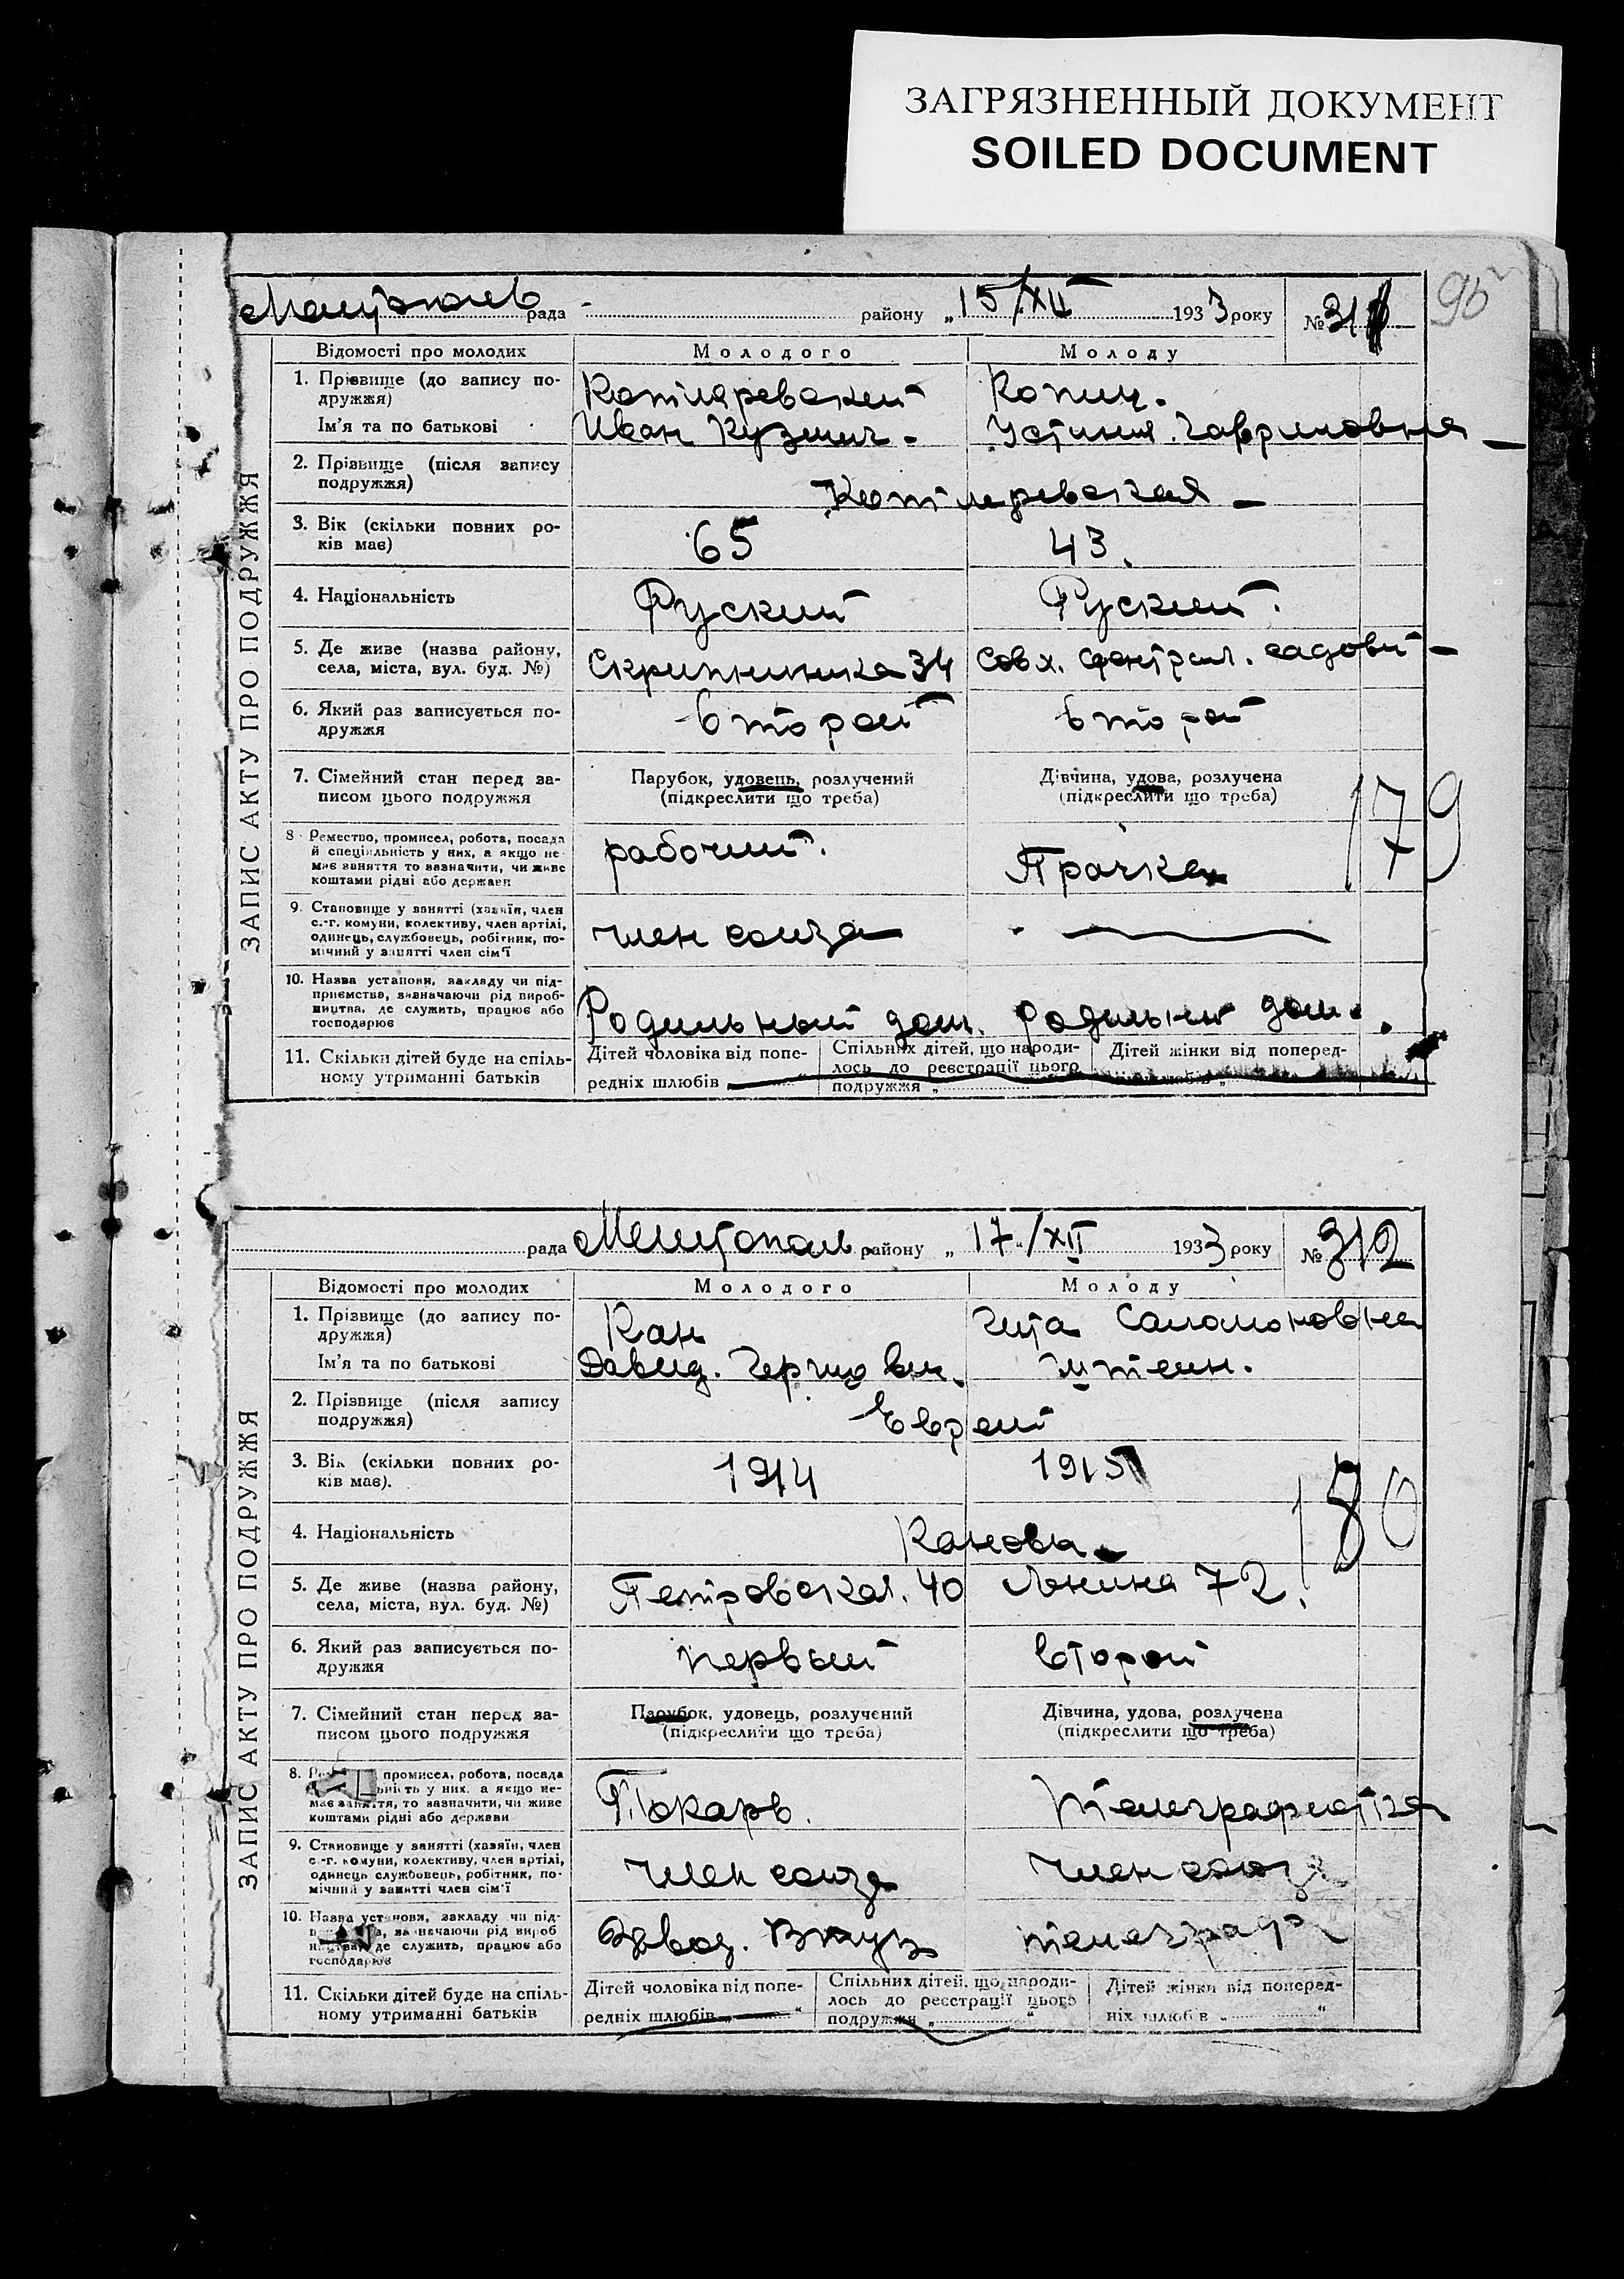 ЗАГРЯЗНЕННЫЙ ДОКУМЕНТ
SOILED DOCUMENT
95
рада району „15/XII 1933 року № 311
ЗАПИС АКТУ ПРО ПОДРУЖЖЯ
Відомості про молодих
Молодого
Молоду
1. Прізвище (до запису по-
дружжя)
Ім'я та по батькові
Котляревский
Иван Кузмич
Копиц.
Устиния. Гавриловна
2. Прізвище (після запису
подружжя)
Котляревская
3. Вік (скільки повних ро-
ків має)
65
43
4. Національність
Руский
Руский.
5. Де живе (назва району,
села, міста, вул. буд. №)
Скрипника 34
Совх. централ. садовий
6. Який раз записується по-
дружжя
второй
второй
7. Сімейний стан перед за-
писом цього подружжя
Парубок, удовець, розлучений
(підкреслити що треба)
Дівчина, удова, розлучена
(підкреслити що треба)
179
8 Ремество, промисел, робота, посада
й спеціяльність у них, а якщо не-
має заняття то зазначити, чи живе
коштами рідні або держави
рабочий.
Прачка
9. Становище у занятті (хазяїн, член
с.-г. комуни, колективу, член артілі,
одинець, службовець, робітник, по-
мічний у занятті член сім'ї
член союза
10. Назва установи, закладу чи під-
приємства, зазначаючи рід вироб-
ництва, де служить, працює або
господарює
Родильный дом.
родильни дом.
11. Скільки дітей буде на спіль-
ному утриманні батьків
Дітей чоловіка від попе-
редніх шлюбів
Спільних дітей, що народи-
лось до реєстрації цього
подружжя „
Дітей жінки від поперед-
рада Мелитополь району „17“/XII 1933 року № 312
ЗАПИС АКТУ ПРО ПОДРУЖЖЯ
Відомості про молодих
Молодого
Молоду
1. Прізвище (до запису по-
дружжя)
Ім'я та по батькові
Кан
Давид. Гершович.
Гита Саломоновна
Штеин.
2. Прізвище (після запису
подружжя)
Еврей
3. Вік (скільки повних ро-
ків має).
1914
1915
180
4. Національність
Кановы
5. Де живе (назва району,
села, міста, вул. буд. №)
Петровская. 40
Ленина 72.
6. Який раз записується по-
дружжя
первый
второй
7. Сімейний стан перед за-
писом цього подружжя
Парубок, удовець, розлучений
(підкреслити що треба)
Дівчина, удова, розлучена
(підкреслити що треба)
8. промисел, робота, посада
у них, а якщо не-
має заняття, то зазначити, чи живе
коштами рідні або держави
Токарь.
Телеграфистка
9. Становище у занятті (хазяїн, член
с.-г. комуни, колективу, член артілі,
одинець службовець, робітник, по-
мічний у занятті член сім'ї
член союза
член союза
10. Назва установи, закладу чи під-
зазначаючи рід вироб
ництва, де служить, працює або
господарює
телеграф
11. Скільки дітей буде на спіль-
ному утриманні батьків
Дітей чоловіка від попе-
редніх шлюбів „ “
Спільних дітей, що народи-
лось до реєстрації цього
подружжя „ “
Дітей жінки від поперед-
ніх шлюбів „ “